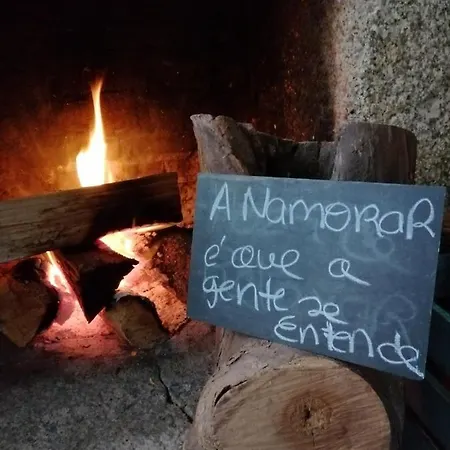 A NamoraR
é que a
gente se
entende